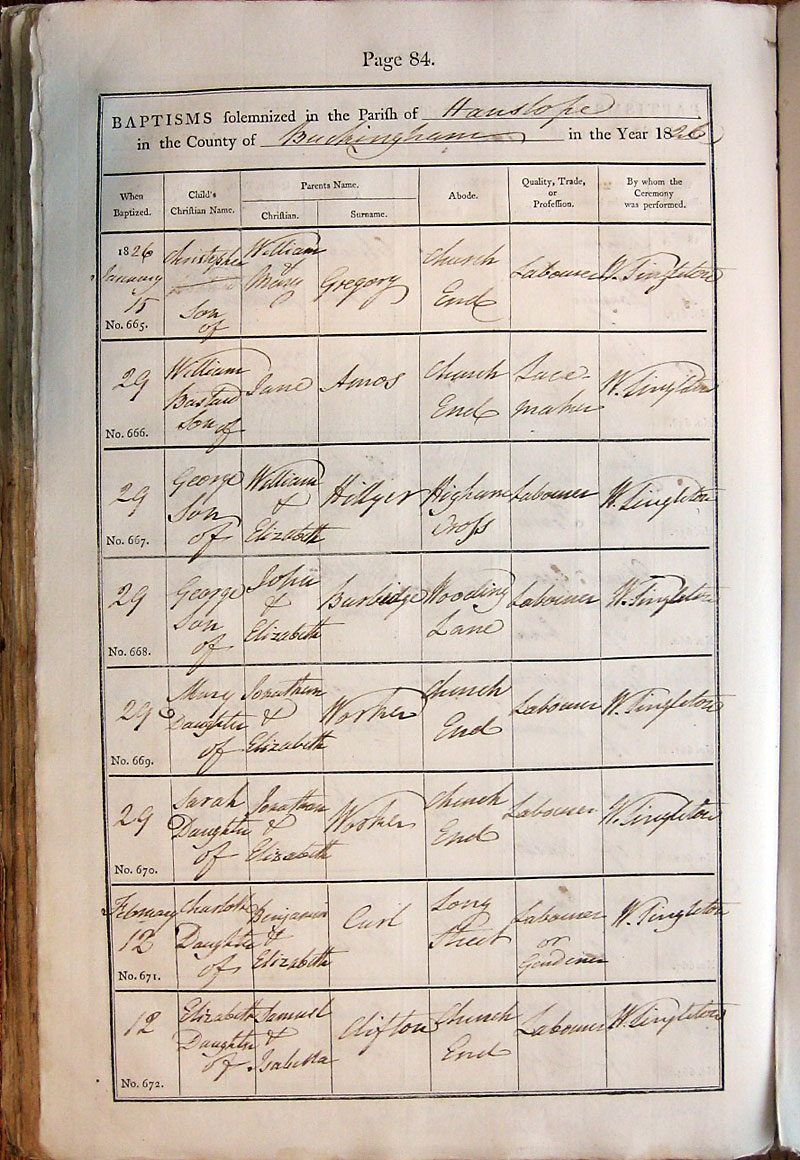 Page 84.
BAPTISMS solemnized in the Parish of Hanslope
in the County of Buckingham in the Year 1826
When Baptized. Child's Christian Name. Parents Name. Abode. Quality, Trade, or Profession. By whom the Ceremony was performed.
Christian. Surname.
1826 Christopher William Church
January & Labourer W. Singleton
15 Son Mary Gregory End
No. 665. of
William Church Lace-
29 Bastard Jane Amos W. Singleton
Son of End maker
No. 666.
George William Higham
29 Son & Hillyer Labourer W. Singleton
of Elizabeth Cross
No. 667.
George John Wooding
29 Son & Burbidge Labourer W. Singleton
of Elizabeth Lane
No. 668.
Mary Jonathan Church
29 Daughter & Worker Labourer W. Singleton
of Elizabeth End
No. 669.
Sarah Jonathan Church
29 Daughter & Worker Labourer W. Singleton
of Elizabeth End
No. 670.
February Charlotte Benjamin Long Labourer
12 Daughter & Curl Street or W. Singleton
of Elizabeth Gardener
No. 671.
Elizabeth Samuel Church
12 Daughter & Clifton Labourer W. Singleton
of Isabella End
No. 672.